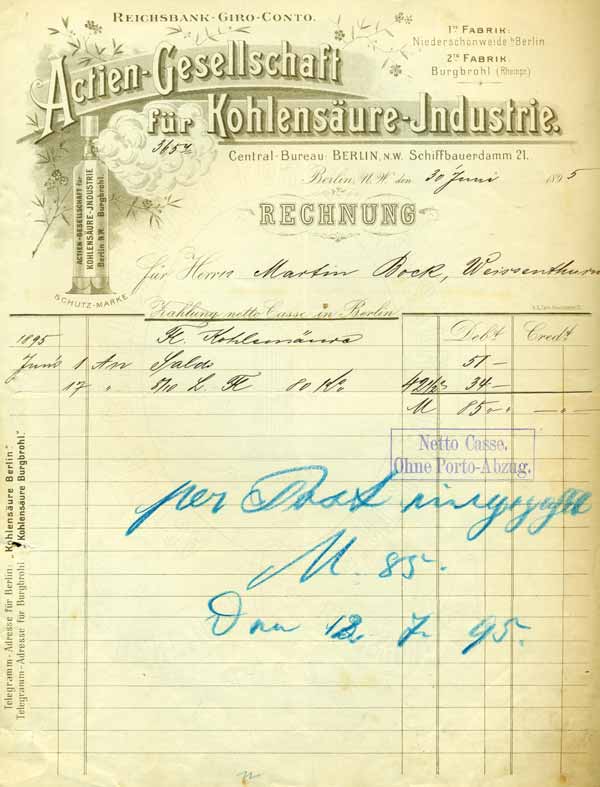 REICHSBANK-GIRO-CONTO.
1te FABRIK:
Niederschönweide b/Berlin
2te FABRIK:
Burgbrohl (Rheinpr.)
Actien-Gesellschaft
für Kohlensäure-Jndustrie.
Central-Bureau BERLIN, N.W. Schiffbauerdamm 21.
Berlin, N.W. den 30 Juni 1895
RECHNUNG
ACTIEN-GESELLSCHAFT für
KOHLENSÄURE-JNDUSTRIE
Berlin N.W. Burgbrohl.
SCHUTZ-MARKE
für Herrn Martin Bock, Weissenthurm
Zahlung netto Casse in Berlin
Debt. Credt.
1895 Fl. Kohlensäure
Juni 1 An Saldo 51 –
17 " 8/10 L. Fl 80 Ko 42 1/2 34 –
M 85 " – " –
Netto Casse.
Ohne Porto-Abzug.
per Post eingezahlt
M. 85.
Den 12. 7. 95.
Telegramm-Adresse für Berlin: „Kohlensäure Berlin“
Telegramm-Adresse für Burgbrohl „Kohlensäure Burgbrohl.“